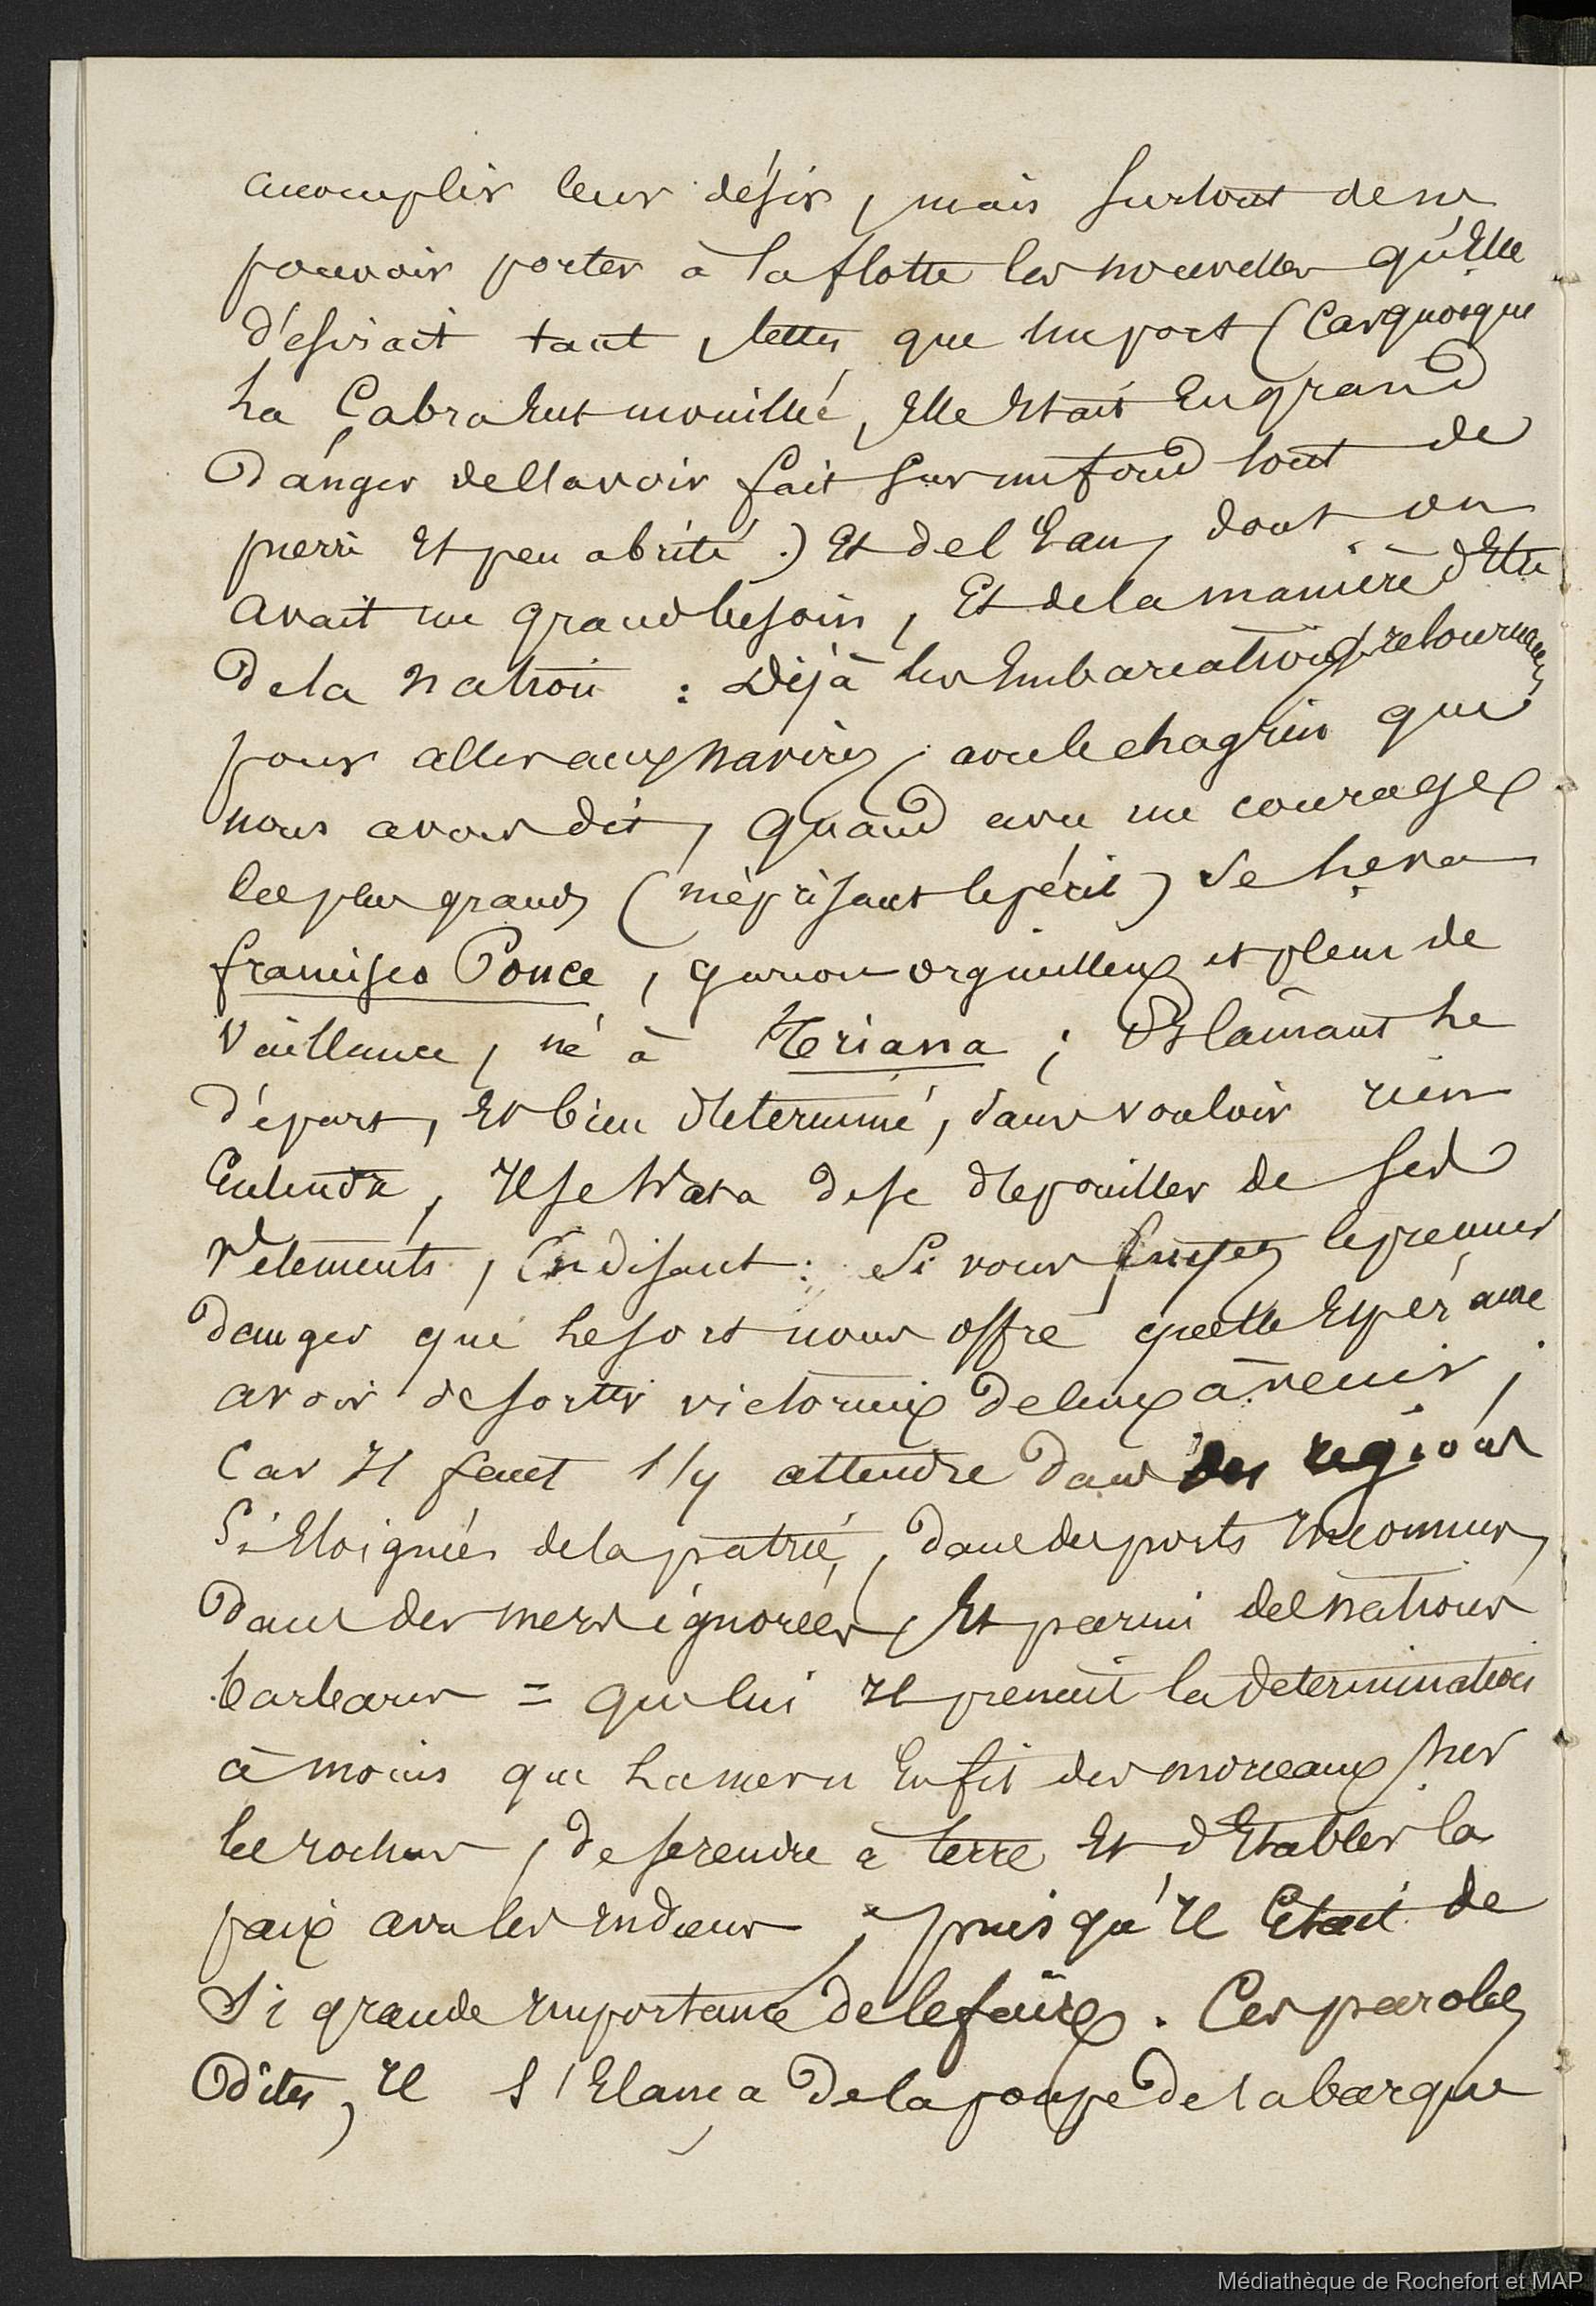 accomplir leur désir, mais surtout de ne
pouvoir porter à la flotte les nouvelles qu'Elle
d'esirait tant, telles que un port (Carquoique
La Cabra eut mouillé, Elle Etait En grand
Danger de l'avoir fait sur un fond tout de
pierre Et peu abrité.) Et de l'Eau, dont on
avait un grand besoin, Et de la manière d'Etre
De la nation : Déjà les Embarcations retournaient
pour aller aux navires, avec le chagrin que
nous avons dit, quand avec un courage
des plus grands (méprisant le péril) se leva
francisco Ponce, garçon orgueilleux et plein de
Vaillance, né à Triana ; Blâmant le
d'epart, Et bien determiné, sans vouloir rien
Entendre, Il se hâta de se depouiller de ses
vêtements, En disant : Si vous fuyez le premier
danger que le sort nous offre quelle Espérance
avoir de sortir victorieux de ceux à venir ;
Car Il faut s'y attendre dans des regions
Si Eloignées de la patrie, dans des ports Inconnus,
Dans des mers ignorées, Et parmi des nations
barbares = que lui Il prenait la determination
à moins que la mer n'En fit des morceaux sur
les rochers, de se rendre à terre Et d'Etablir la
paix avec les Indiens ; puisqu'Il Etait de
Si grande Importance de le faire. Ces paroles
Dites, Il s'Elança De la poupe De la barque
Médiathèque de Rochefort et MAP